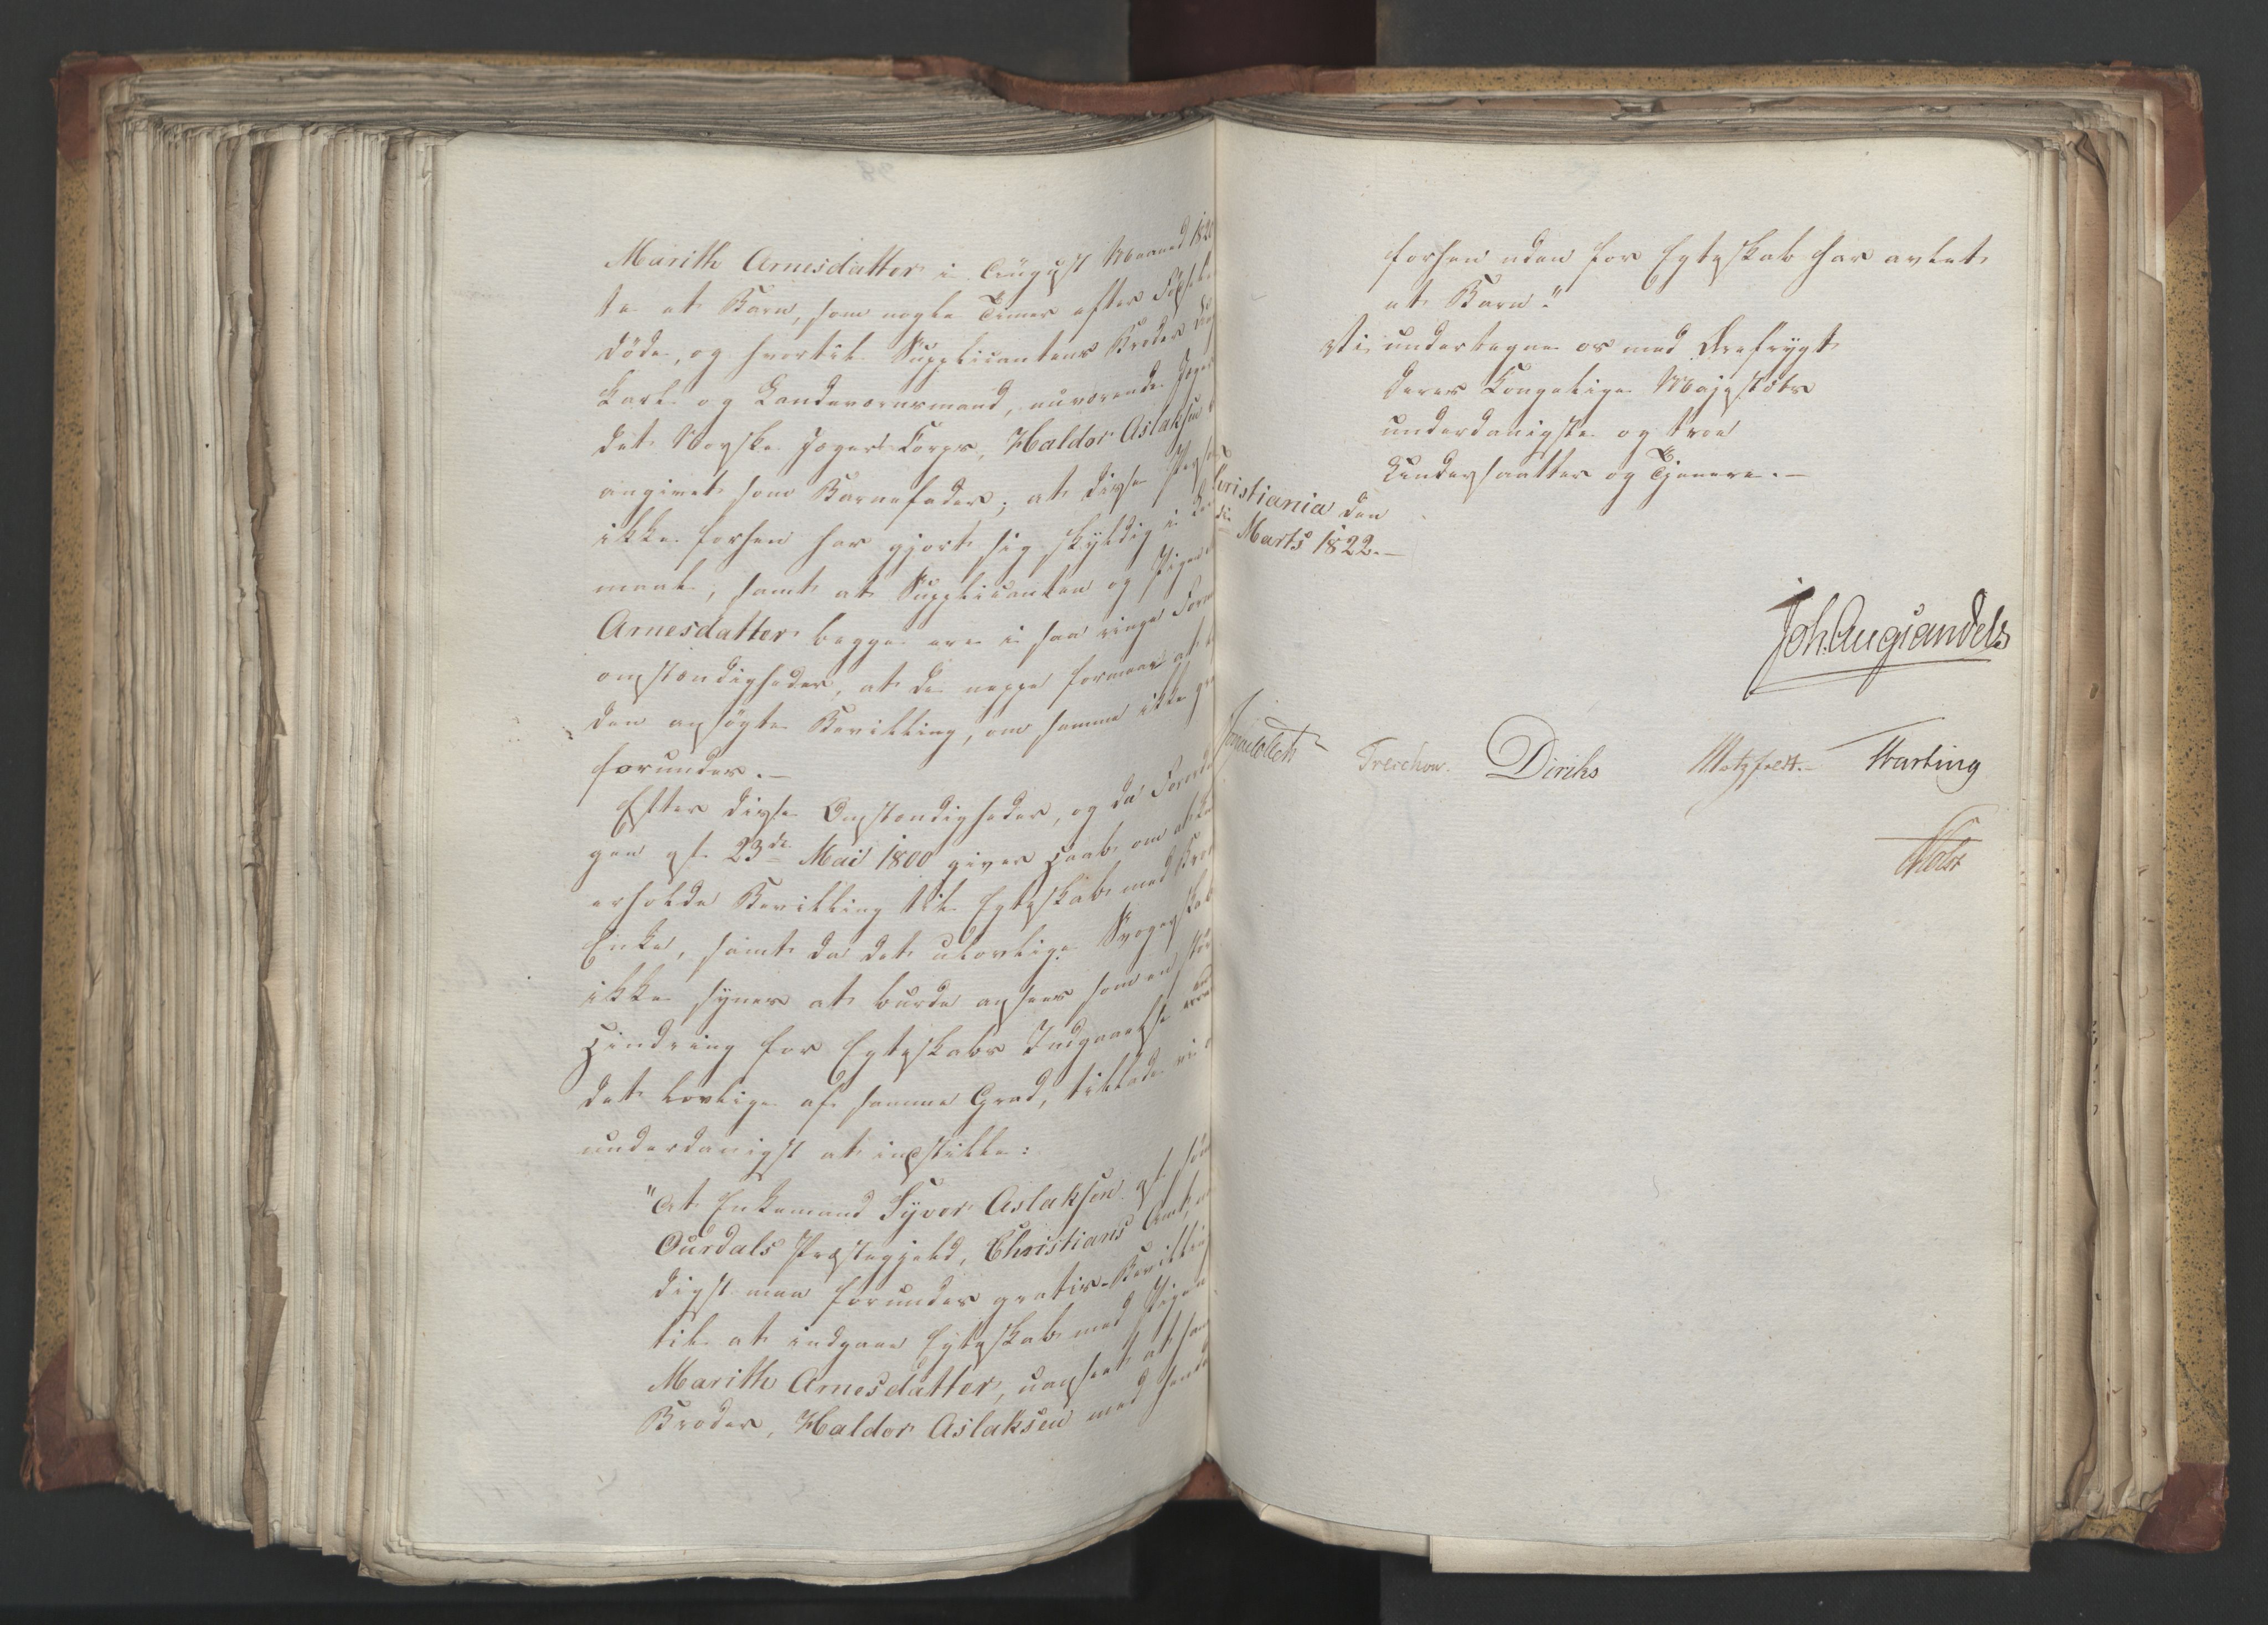 Marith Arnesdatter i August Maaned 182
te et Barn, som nogle Timer efter Fødsele
døde, og hvortil Supplicantens Broder
Karl og Landeværnsmand, nuværende Jæger
det Norske Jæger-Corps, Haldor Aslaksen
angivet som Barnefader; at disse
ikke forhen har gjort sig skyldig i
maal, samt at Supplicanten og Pigen
Arnesdatter begge ere i saa ringe
omstændigheder, at de neppe formaae at
den ansøgte Bevilling, om samme ikke
forundes.—
Efter disse Omstændigheder, og da
gen af 23de Mai 1800 giver Haab om at
erholde Bevilling til Egteskab med
Enke, samt da det ulovlige Svogerskab
ikke synes at burde ansees som en stør
Hindring for Egteskabs Indgaaelse end
det lovlige af samme Grad, tillade vi
underdanigst at indstille:
"At Enkemand Syver Aslaksen af
Ourdals Præstegjeld, Christians Amt,
digst maa forundes gratis Bevilling
til at indgaae Egteskab med Pigen
Marith Arnesdatter, uanseet at hans
Broder, Haldor Aslaksen med hende
forhen uden for Egteskab har avlet
et Barn."
Vi undertegne os med Ærefrygt
Deres Kongelige Majestæts
underdanigste og troe
Undersaatter og Tjenere.—
Christiania den
Marts 1822.—
Joh. Aug. Sandels
Jonas Collett
Treschow. Diriks Motzfeldt. Krarting
Holst